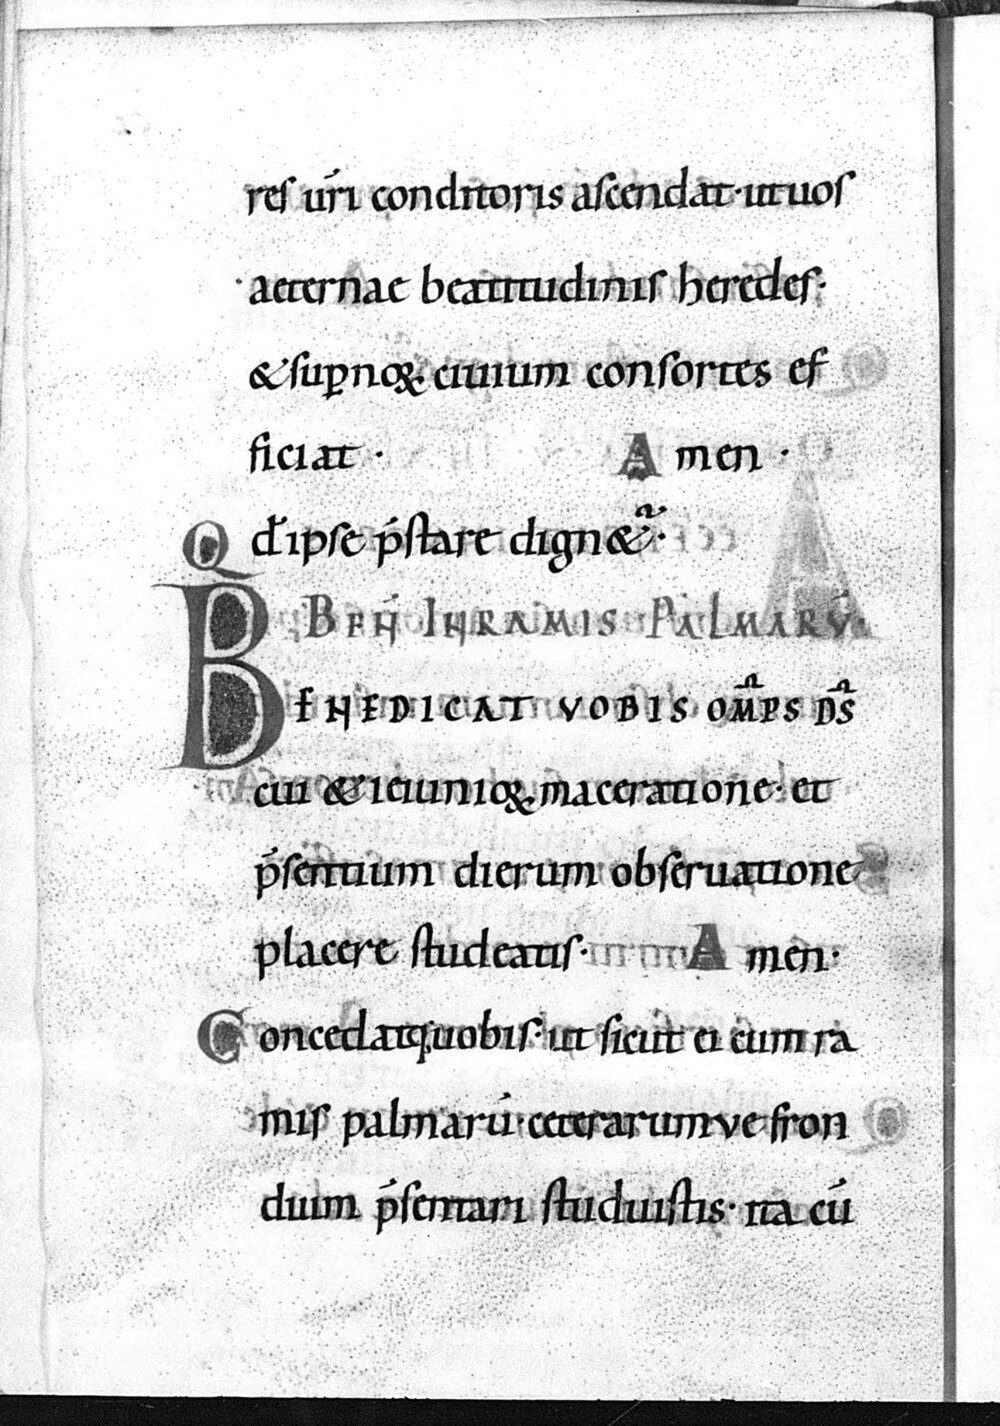 res ur̄i conditoris ascendat· ut uos
aeternae beatitudinis heredes·
&sup̄noꝝ ciuium consortes ef
ficiat · Amen ·
Qd̄ ipse p̄stare dign&ur̃·
BEN̄ IN RAMIS PALMARŪ·
BENEDICAT VOBIS OM̄PS DS̄
cui & ieiunioꝝ maceratione· et
p̄sentium dierum obseruatione
placere studeatis· Amen·
Concedatq; uobis· ut sicut ei cum ra
mis palmarū· ceterarumve fron
dium p̄sentari studuistis· ita cū